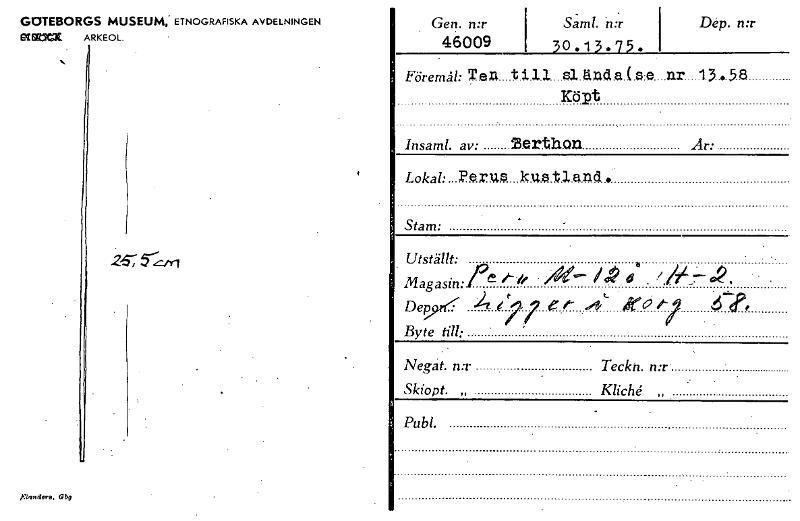 GÖTEBORGS MUSEUM, ETNOGRAFISKA AVDELNINGEN
ARKEOL.
25,5 cm
Elanders, Gbg
Gen. n:r Saml. n:r Dep. n:r
46009 30.13.75.
Föremål: Ten till slända(se nr 13.58
Köpt
Insaml. av: Berthon År:
Lokal: Perus kustland.
Stam:
Utställt:
Magasin: Peru M-12 H-2.
Depon.: Ligger i korg 58.
Byte till:
Negat. n:r Teckn. n:r
Skiopt. „ Kliché „
Publ.